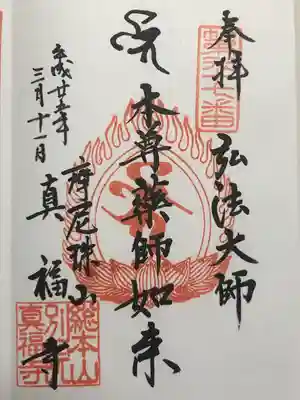 奉拝
弘法大師
本尊薬師如来
摩尼珠山
真福寺
平成廿年
三月十一日
總本山
別院
真福寺